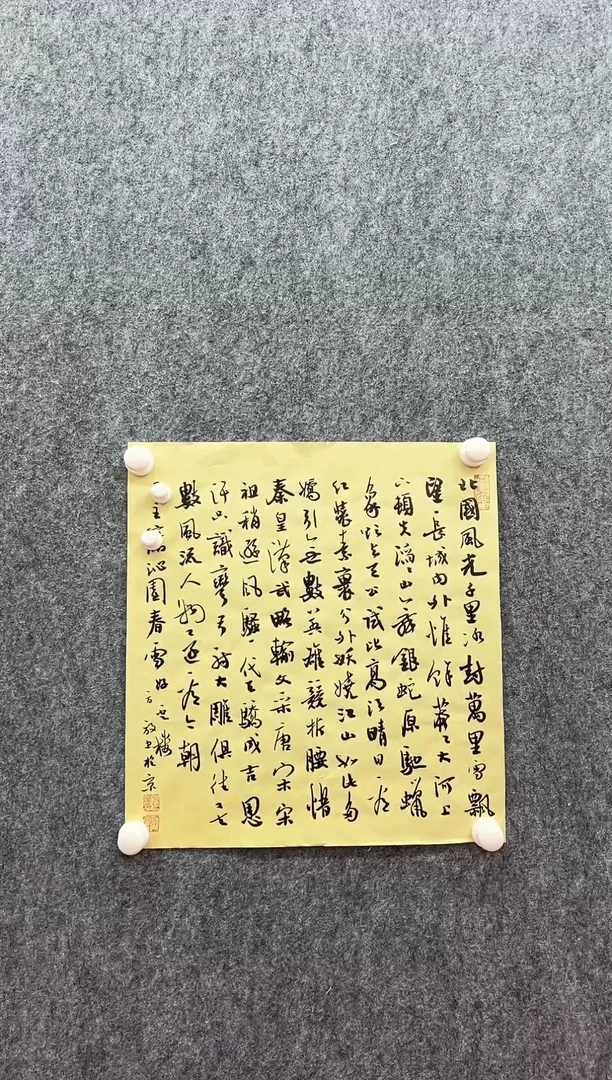 北國風光千里冰封萬里雪飄
望長城內外惟餘莽〻大河上
下頓失滔〻山舞銀蛇原馳蠟
象欲與天公試比高須晴日看
紅裝素裹分外妖嬈江山如此多
嬌引無數英雄競折腰惜
秦皇漢武略輸文采唐宗宋
祖稍遜風騷一代天驕成吉思
汗只識彎弓射大雕俱往矣
數風流人物還看今朝
主席沁園春雪
書於京